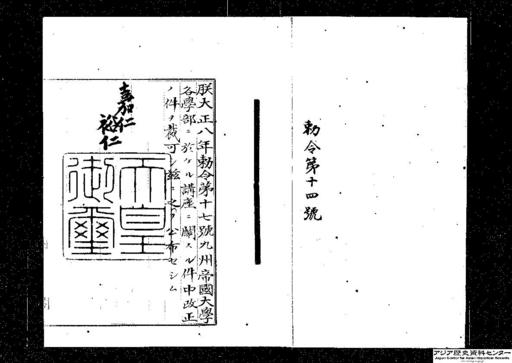 勅令第十四號
朕大正八年勅令第十七號九州帝國大學
各學部ニ於ケル講座ニ關スル件中改正
ノ件ヲ裁可シ玆ニ之ヲ公布セシム
嘉仁
裕仁
天皇
御璽
アジア歴史資料センター
Japan Center for Asian Historical Records